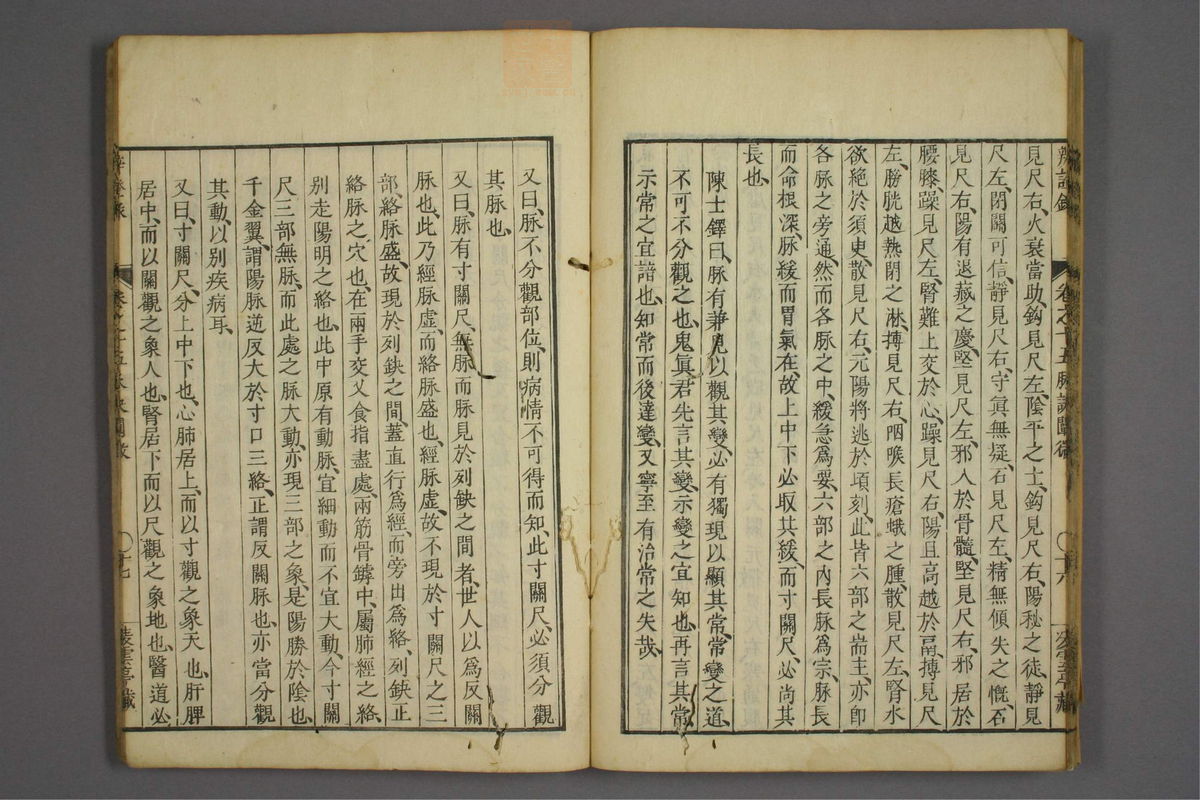 見尺右、火衰當助、鈎見尺左、陰平之士、鈎見尺右、陽秘之徒、靜見
尺左、閉關可信、靜見尺右、守眞無疑、石見尺左、精無傾失之慨、石
見尺右、陽有退藏之慶、堅見尺左、邪入於骨髓、堅見尺右、邪居於
腰膝、躁見尺左、腎難上交於心、躁見尺右、陽且高越於鬲、摶見尺
左、膀胱越熱閉之淋、摶見尺右、咽喉長瘡蛾之腫、散見尺左、腎水
欲絕於須臾、散見尺右、元陽將逃於頃刻、此皆六部之耑主、亦卽
各脉之旁通、然而各脉之中、緩急爲要、六部之內、長脉爲宗、脉長
而命根深、脉緩而胃氣在、故上中下必取其緩、而寸關尺必尚其
長也、
陳士鐸曰、脉有兼見以觀其變、必有獨現以顯其常、常變之道、
不可不分觀之也、鬼眞君先言其變、示變之宜知也、再言其常
示常之宜諳也、知常而後達變、又寧至有治常之失哉、
又曰、脉不分觀部位、則病情不可得而知、此寸關尺、必須分觀
其脉也、
又曰、脉有寸關尺、無脉而脉見於列缺之間者、世人以爲反關
脉也、此乃經脉虛、而絡脉盛也、經脉虛、故不現於寸關尺之三
部、絡脉盛、故現於列缺之間、蓋直行爲經、而旁出爲絡、列缺正
絡脉之穴也、在兩手交叉食指盡處、兩筋骨罅中、屬肺經之絡、
別走陽明之絡也、此中原有動脉、宜細動而不宜大動、今寸關
尺三部無脉、而此處之脉大動、亦現三部之象、是陽勝於陰也、
千金翼、謂陽脉逆反大於寸口三絡、正謂反關脉也、亦當分觀
其動、以別疾病耳、
又曰、寸關尺、分上中下也、心肺居上、而以寸觀之象天也、肝脾
居中、而以關觀之象人也、腎居下而以尺觀之象地也、醫道必